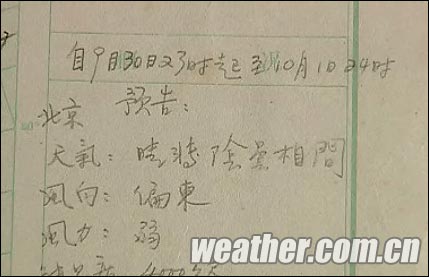 自9月30日23时起至10月1日24时
北京 预告:
天氣: 晴转陰量相間
風向: 偏東
風力: 弱
4000
weather.com.cn